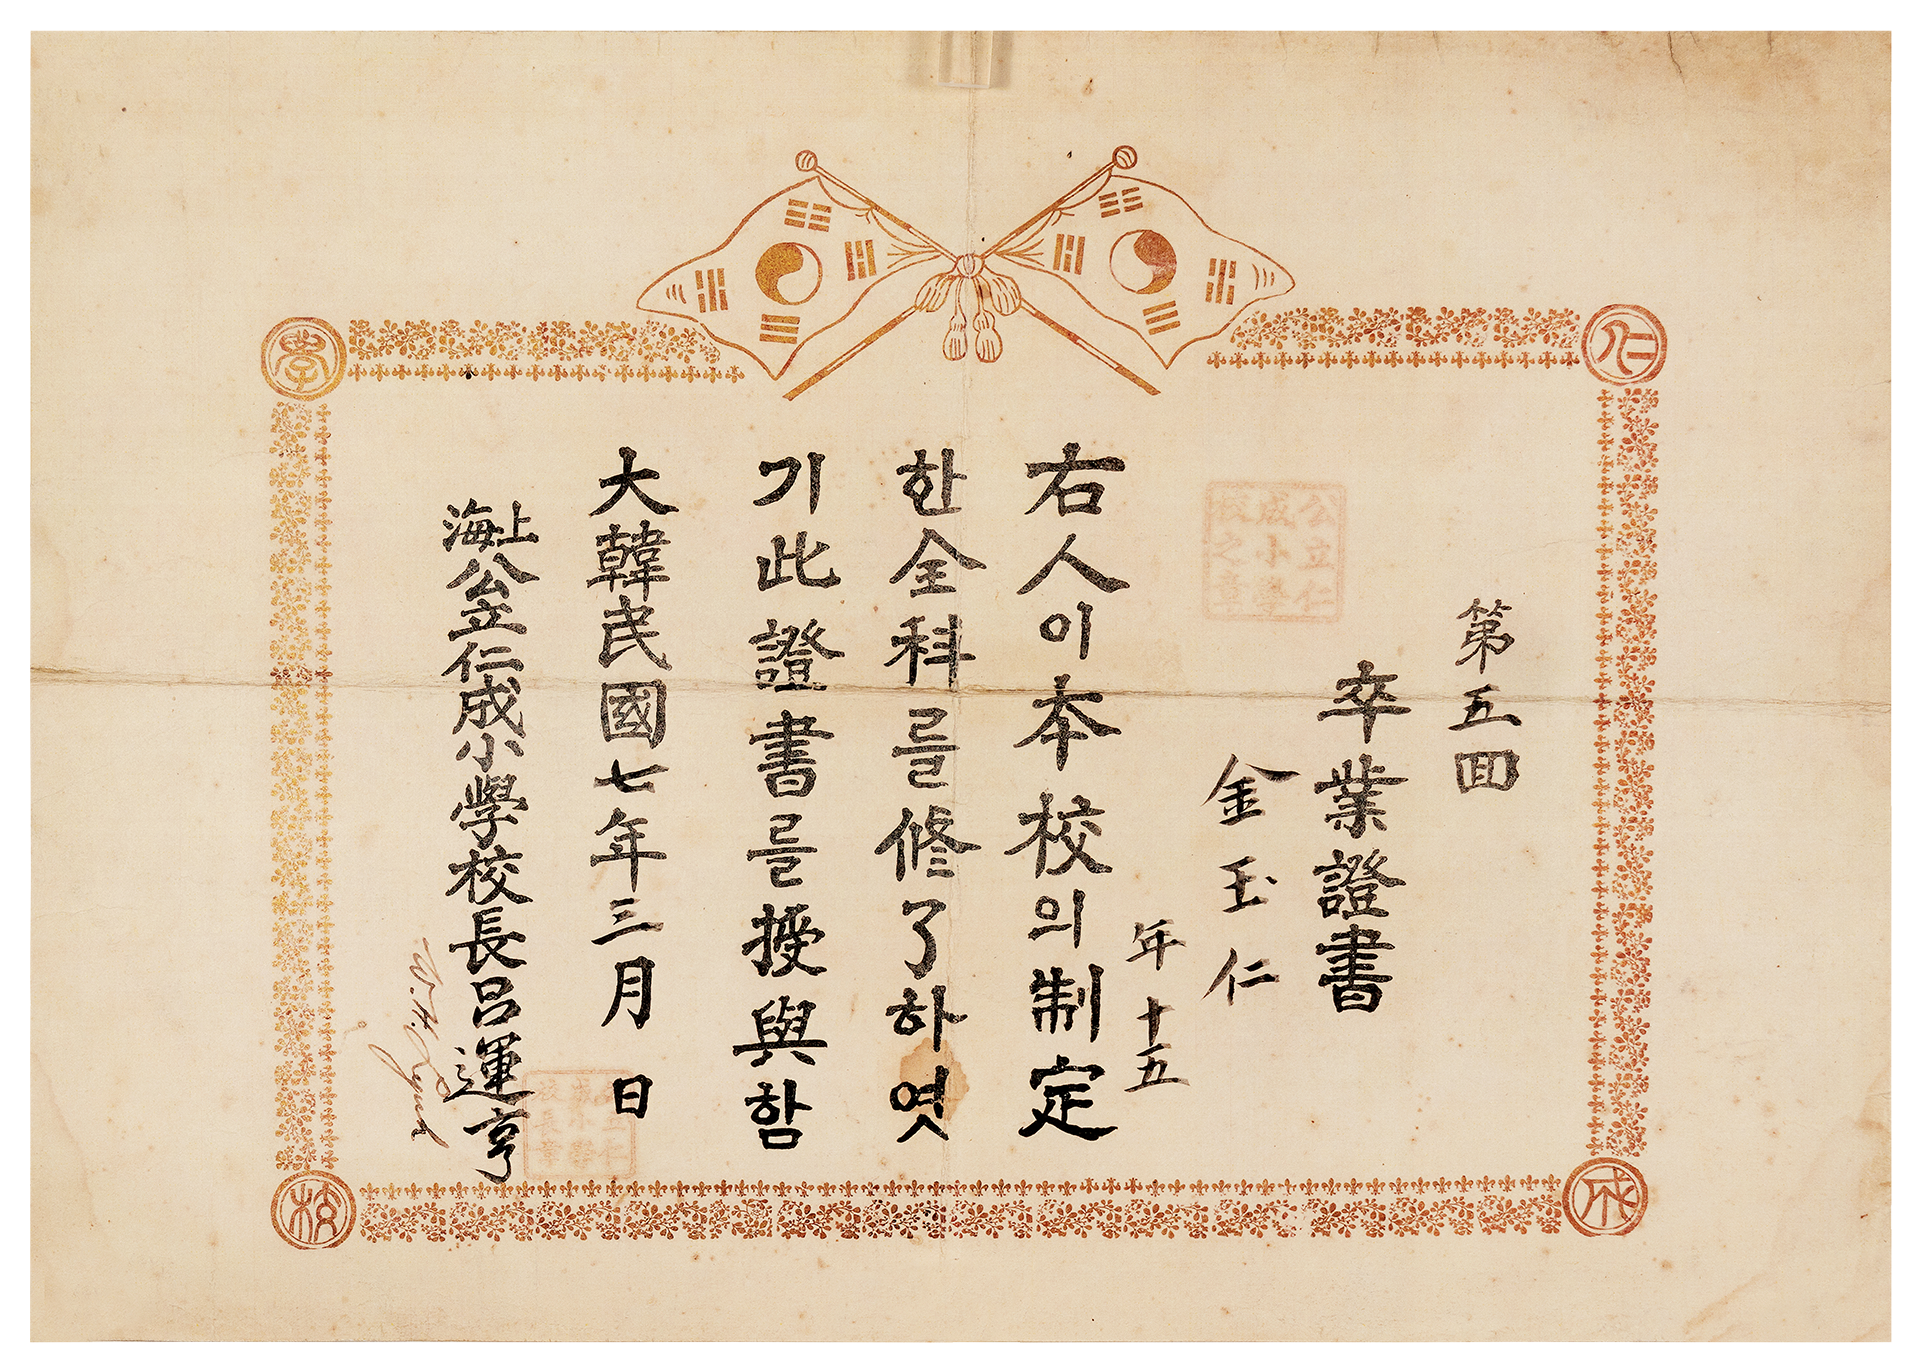 第五回
卒業證書
金玉仁
年十五
右人이本校의制定
한全科를修了하엿
기此證書를授與함
大韓民國七年三月 日
上海公立仁成小學校長呂運亨
仁
成
學
校
公立仁
成小學
校之章